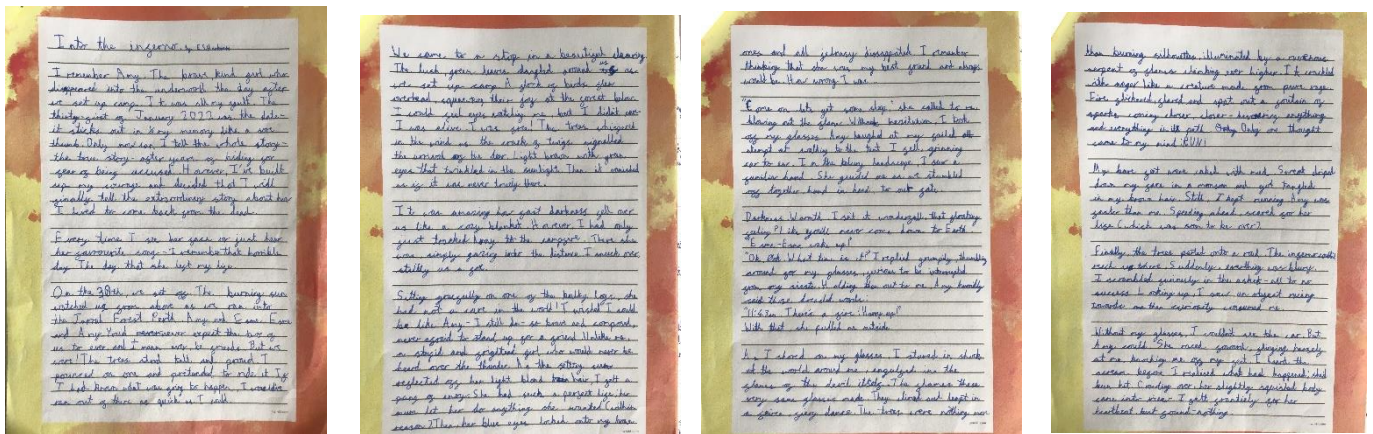 Into the inferno
I remember Amy. The brave, kind girl who
disappeared into the underworld the day after
we set up camp. It was all my fault. The
thirty-first of January 2022 was the date-
it sticks out in my memory like a sore
thumb. Only now can I tell the whole story-
the true story- after years of hiding for
fear of being accused. However, I've built
up my courage and decided that I will
finally tell the extraordinary story about her
I lived to come back from the dead.
Every time I see her face or just hear
her favourite song - I remember that horrible
day. The day that she left my life.
On the 30th, we set off. The burning sun
watched us from above as we ran into
the Forest
and Amy. You'd never expect the two of
us to ever and I mean ever be friends. But we
were! The trees stood tall and proud. I
pounced on one and pretended to ride it. If
I had known what was going to happen, I would've
ran out of there as quick as I could.
We came to a stop in a beautiful clearing.
The lush, green leaves dangled around us as
we set up camp. A flock of birds flew
overhead, squawking their joy at the forest below.
I could feel eyes watching me, but I didn't care.
I was alive. I was free! The trees whispered
in the wind as the crack of twigs signalled
the arrival of the deer. Light brown with green
eyes that twinkled in the sunlight. Then it vanished
as if it was never truly there.
It was amazing how fast darkness fell over
us like a cosy blanket. However, I had only
just to the campfire. There she
was, simply gazing into the distance
Sitting gracefully on one of the bulky logs, she
had not a care in the world! I wished I could
be like Amy - I still do - so brave and composed,
never afraid to stand up for a friend. Unlike me,
a stupid and frightened girl, who would never be
heard over the thunder. As the setting sun
reflected off her light blond hair, I felt a
pang of envy. She had such a perfect life, her
mum let her do anything she wanted (within
reason)! Then her blue eyes locked onto my brown
ones and all jealousy dissipated. I remember
thinking that she was my best friend and always
would be. How wrong I was.
"Come on lets get some sleep" she called to me
blowing out the flame. Without hesitation, I took
off my glasses. Amy laughed at my failed
attempt at walking to the tent. I fell, grinning
ear to ear. In the blurry landscape, I saw a
familiar hand. She guided me as we stumbled
off together hand in hand, to our fate.
Darkness. Warmth. Isn't it wonderful, that floating
feeling? Like you'll never come down to Earth.
wake up!"
What time is it?" I replied grumpily, fumbling
around for my glasses,
Holding them out to me, Amy hurriedly
said those dreaded words:
There's a fire! Hurry up!"
With that she pulled me outside.
As I shoved on my glasses, I stared in shock
at the world around me - engulfed in the
flames of the devil itself. The flames these
very same glasses made. They climbed and leapt in
a fierce, fiery dance. The trees were nothing more
than burning silhouettes, illuminated by a ravenous
serpent of flames climbing ever higher. It crackled
with anger like a creature made from pure rage.
Fire flickered, flared and spat out a fountain of
sparks, coming closer, closer - devouring everything
and everything in its path. Only one thought
came to my mind: RUN!
My bare feet were caked with mud. Sweat dripped
down my face in a monsoon and got tangled
in my brown hair. Still, I kept running. Amy was
faster than me. Speeding ahead for her
life (which was soon to be over).
Finally, the trees parted onto a road. The inferno couldn't
reach us there. Suddenly, everything was blurry.
I scrambled in the ashes - all to no
success. Looking up, I saw an object racing
towards me then curiosity consumed me.
Without my glasses, I couldn't see the car. But
Amy could. She raced forward, flinging herself
at me, knocking me off my feet. I heard the
scream before I realised what had happened;
her hit. Crawling over, her slightly squished body
came into view. I felt frantically for her
heartbeat but found - nothing.